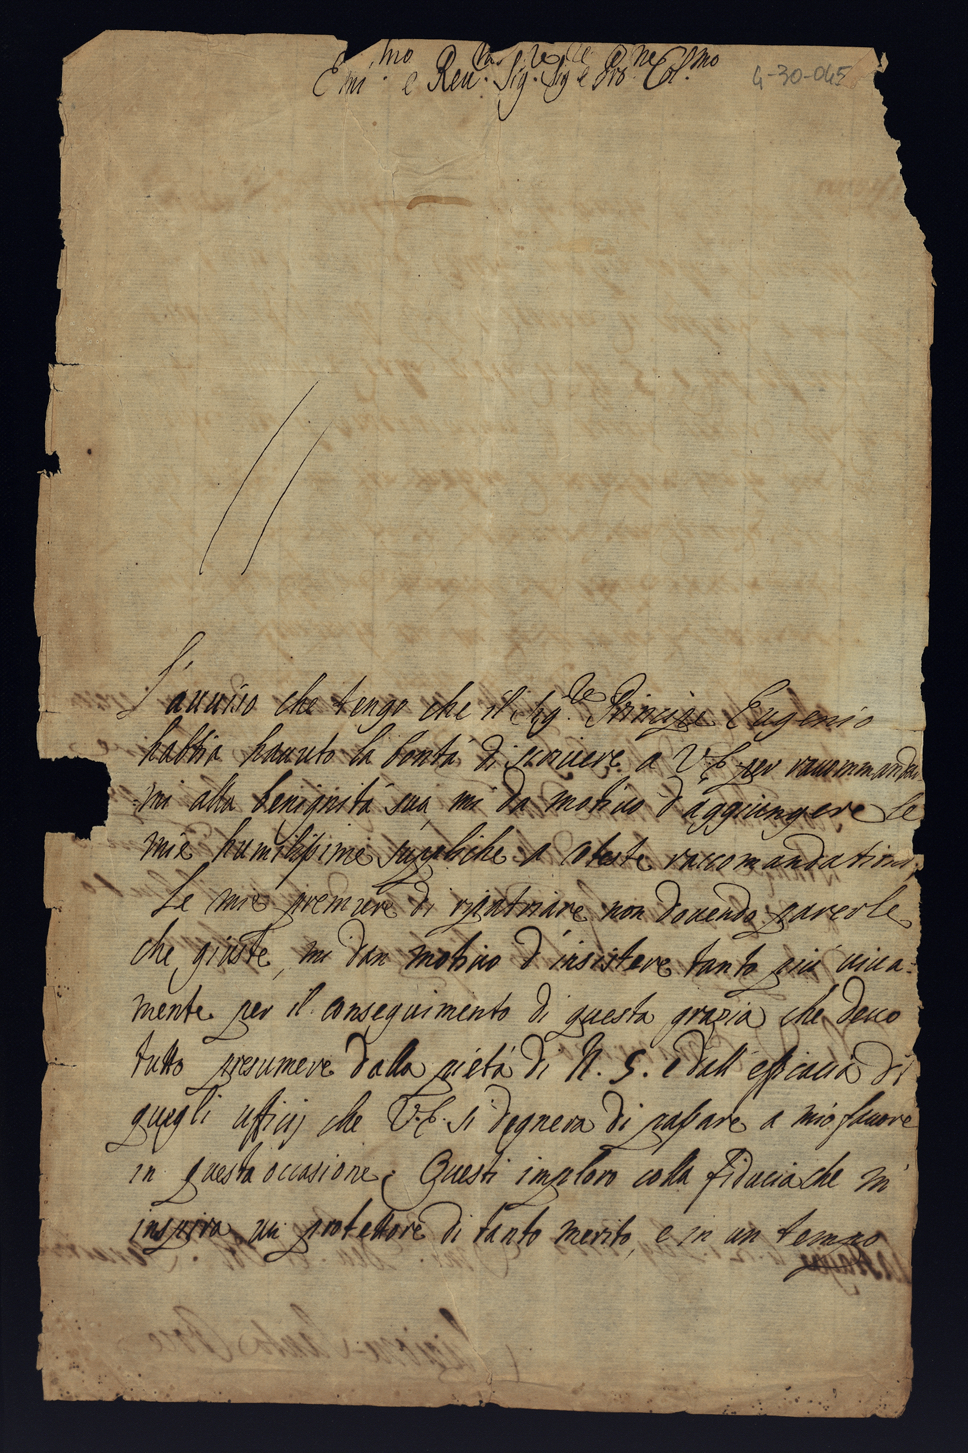 Emi.mo e Reu.mo Sig.r Sig.re e Pro.ne Col.mo
4-30-045
L'auuiso che tengo che il Sig.re Principe Eugenio
habbia hauuto la bontà di scriuere a V.E. per raccommandar
mi alla benignità sua mi da motiuo d'aggiungere le
mie humilissime suppliche a coteste raccomandationi,
Le mie premure di ripatriare non douendo parerle
che giuste, mi dan motiuo d'insistere tanto più viua-
mente per il conseguimento di questa grazia che deuo
tutto presumere dalla pietà di N. S. e dall'efficacia di
quegli ufficij che V.E. si degnerà di passare a mio fauore
in questa occasione. Questi imploro colla fiducia che m'
inspira un protettore di tanto merito, e in un tempo